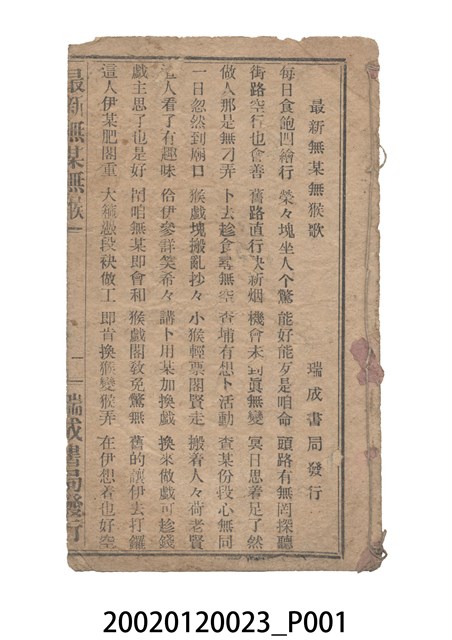 最新無某無猴歌　瑞成書局發行
每日食飽四繪行　榮々塊坐人个驚　能好能歹是咱命　頭路有無罔探聽
街路空行也會善　舊路直行決新烟　機會未到眞無變　冥日思着足了然
做人那是無才弄　卜去趁食都無空　查埔有想卜活動　查某份段心無同
一日忽然到廟口　猴戲塊搬亂抄々　小猴輕票閣賢走　搬着人々荷老賢
人看了有趣味　佮伊參詳笑希々　講卜用某加換戲　換來做戲可趁錢
戲主思了也是好　咱無某即會和　猴戲閣敎免驚無　舊的讓伊去打鑼
這人伊某肥閣重　大種憑段缺做工　即肯換猴變猴弄　在伊想着也好空
最新無某無猴　一　瑞成書局發行
20020120023_P001